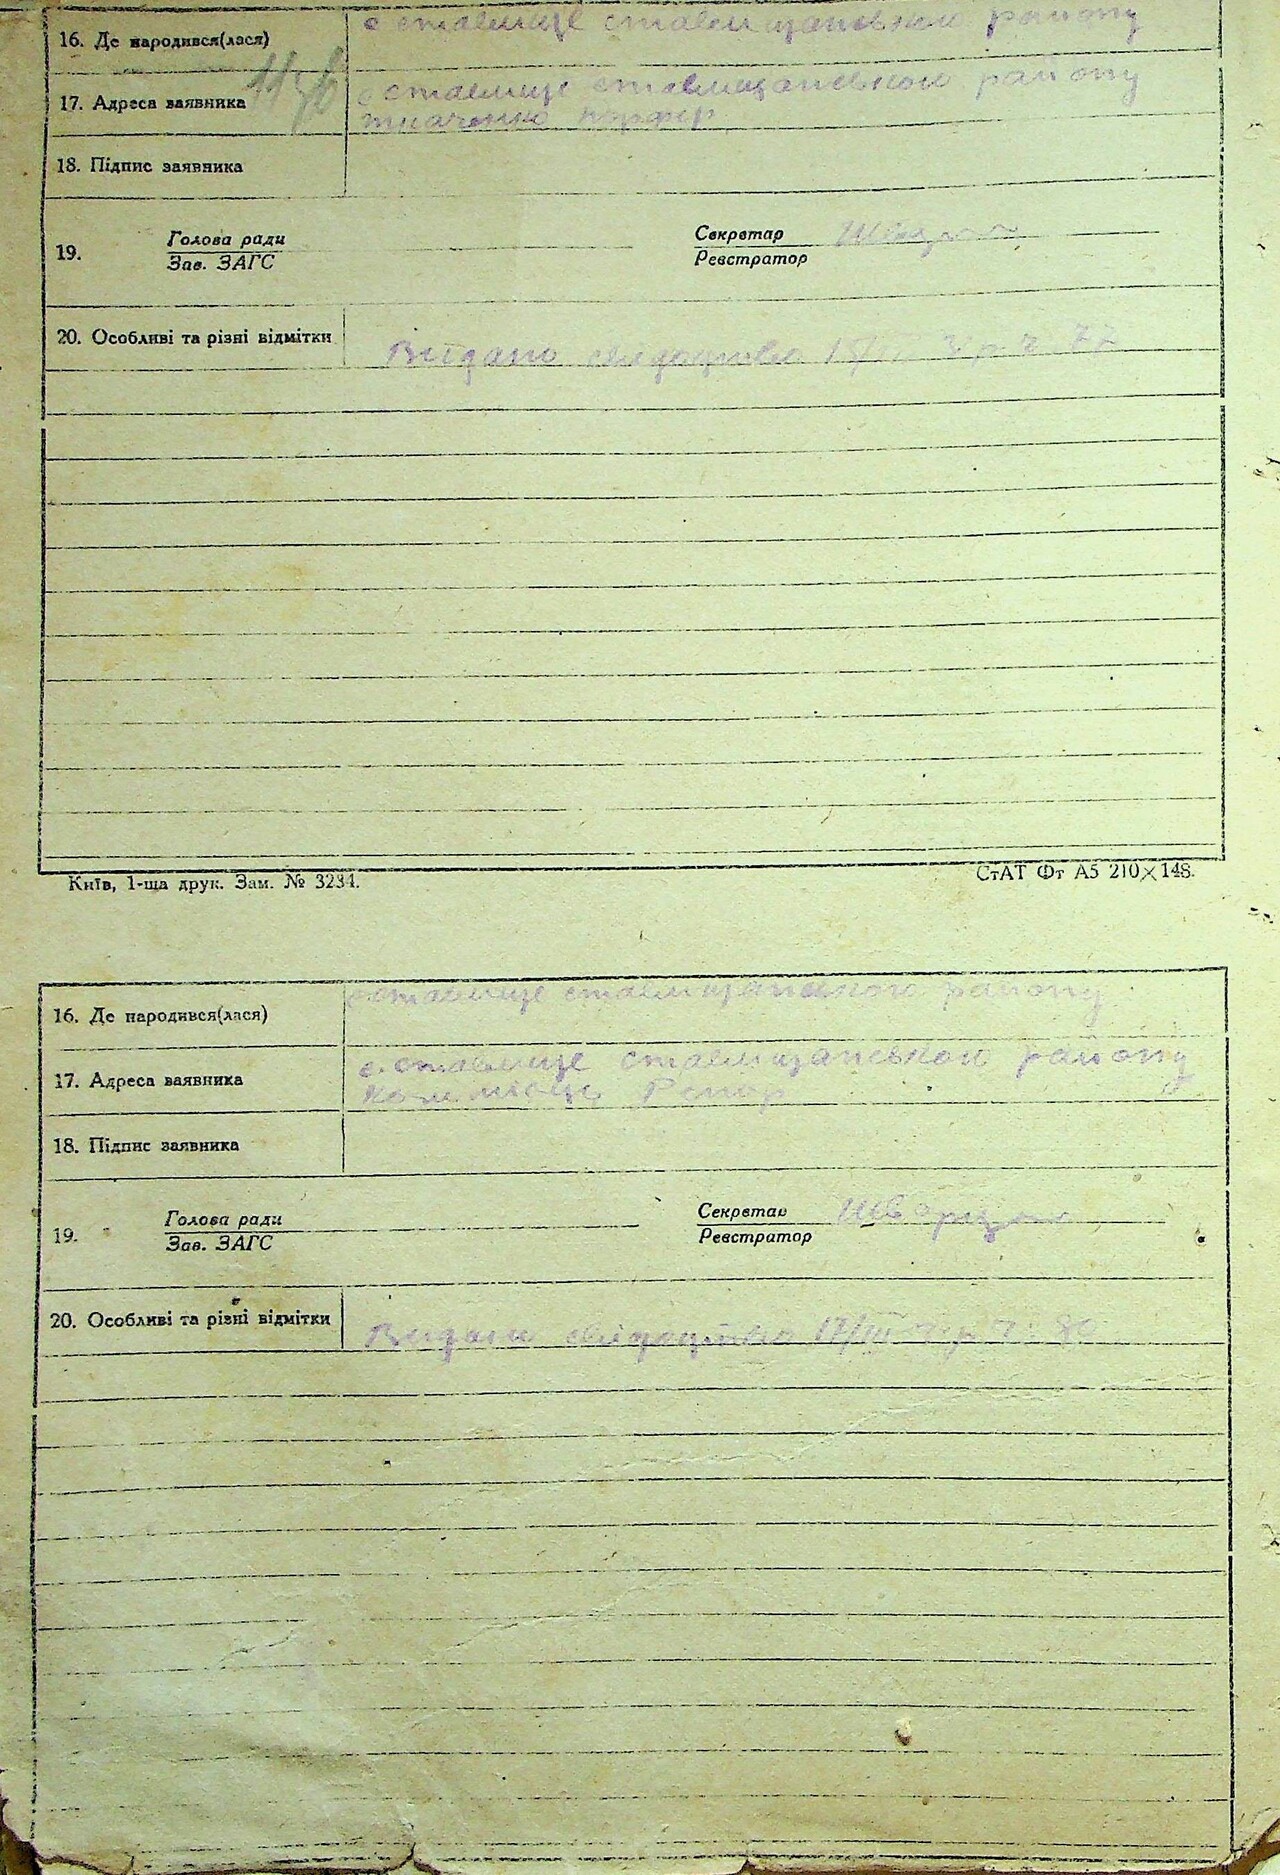 16. Де народився(лася) с ставище ставищанського району
17. Адреса заявника с ставище ставищанського району
ткаченко порфір
18. Підпис заявника
19. Голова ради Секретар
Зав. ЗАГС Реєстратор
20. Особливі та різні відмітки Видано свідоцтво 77
Київ, 1-ша друк. Зам. № 3234. СтАТ Фт А5 210×148.
16. Де народився(лася) с ставище ставищанського району
17. Адреса заявника с. ставище ставищанською району
18. Підпис заявника
19. Голова ради Секретар
Зав. ЗАГС Реєстратор
20. Особливі та різні відмітки Видано свідоцтво 17/III